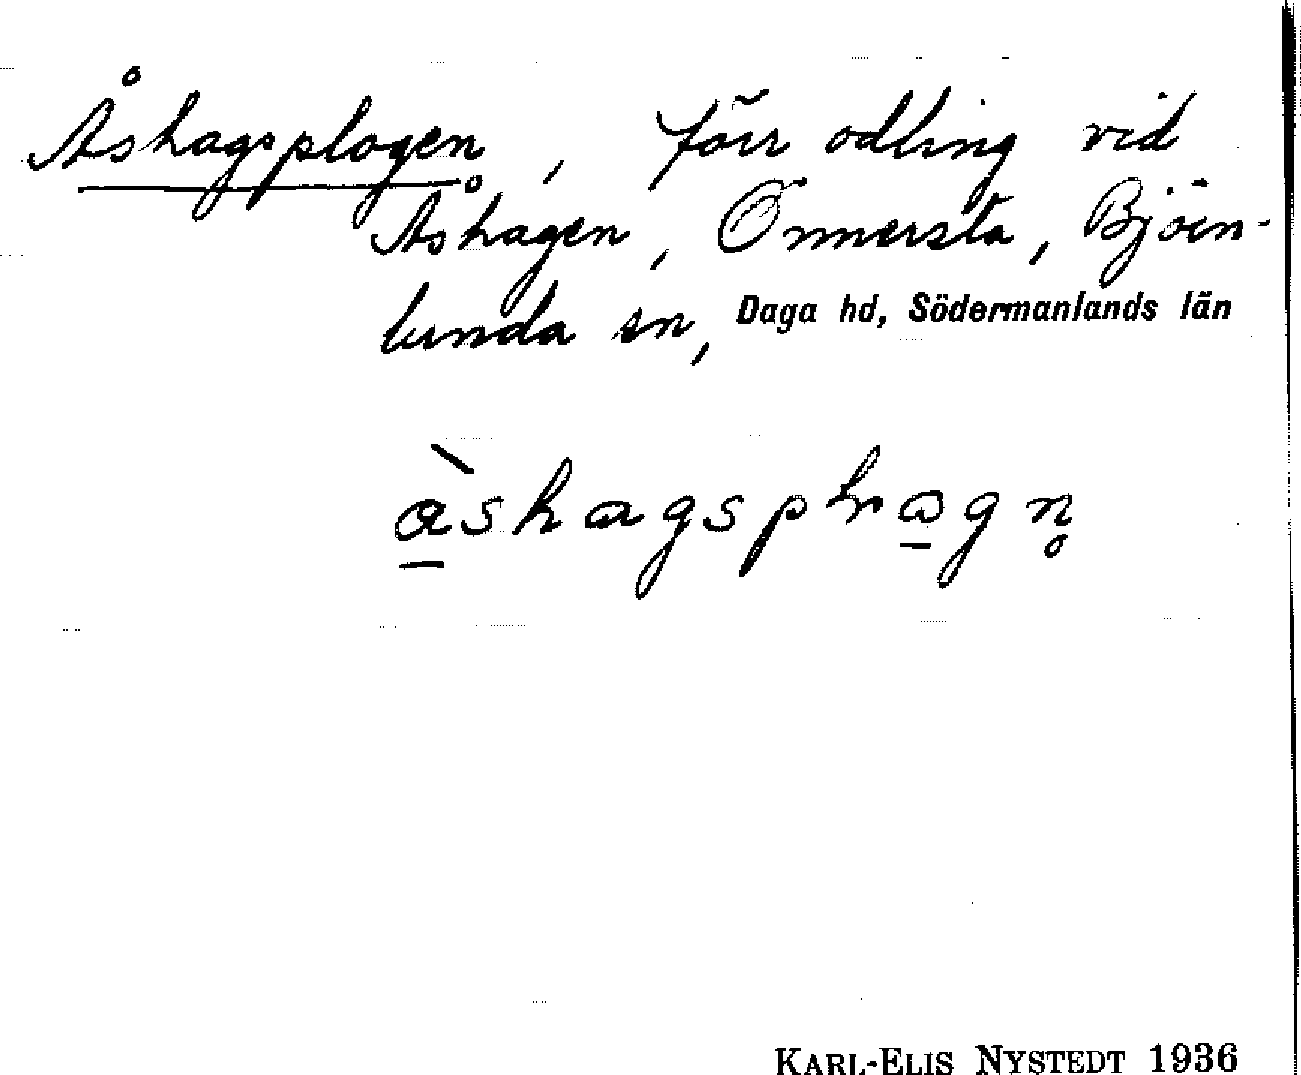 Åshagsplogen, förr odling vid
Åshagen, Önnersta, Björn-
lunda sn, Daga hd, Södermanlands län
àshagsplogn̥
KARL-ELIS NYSTEDT 1936